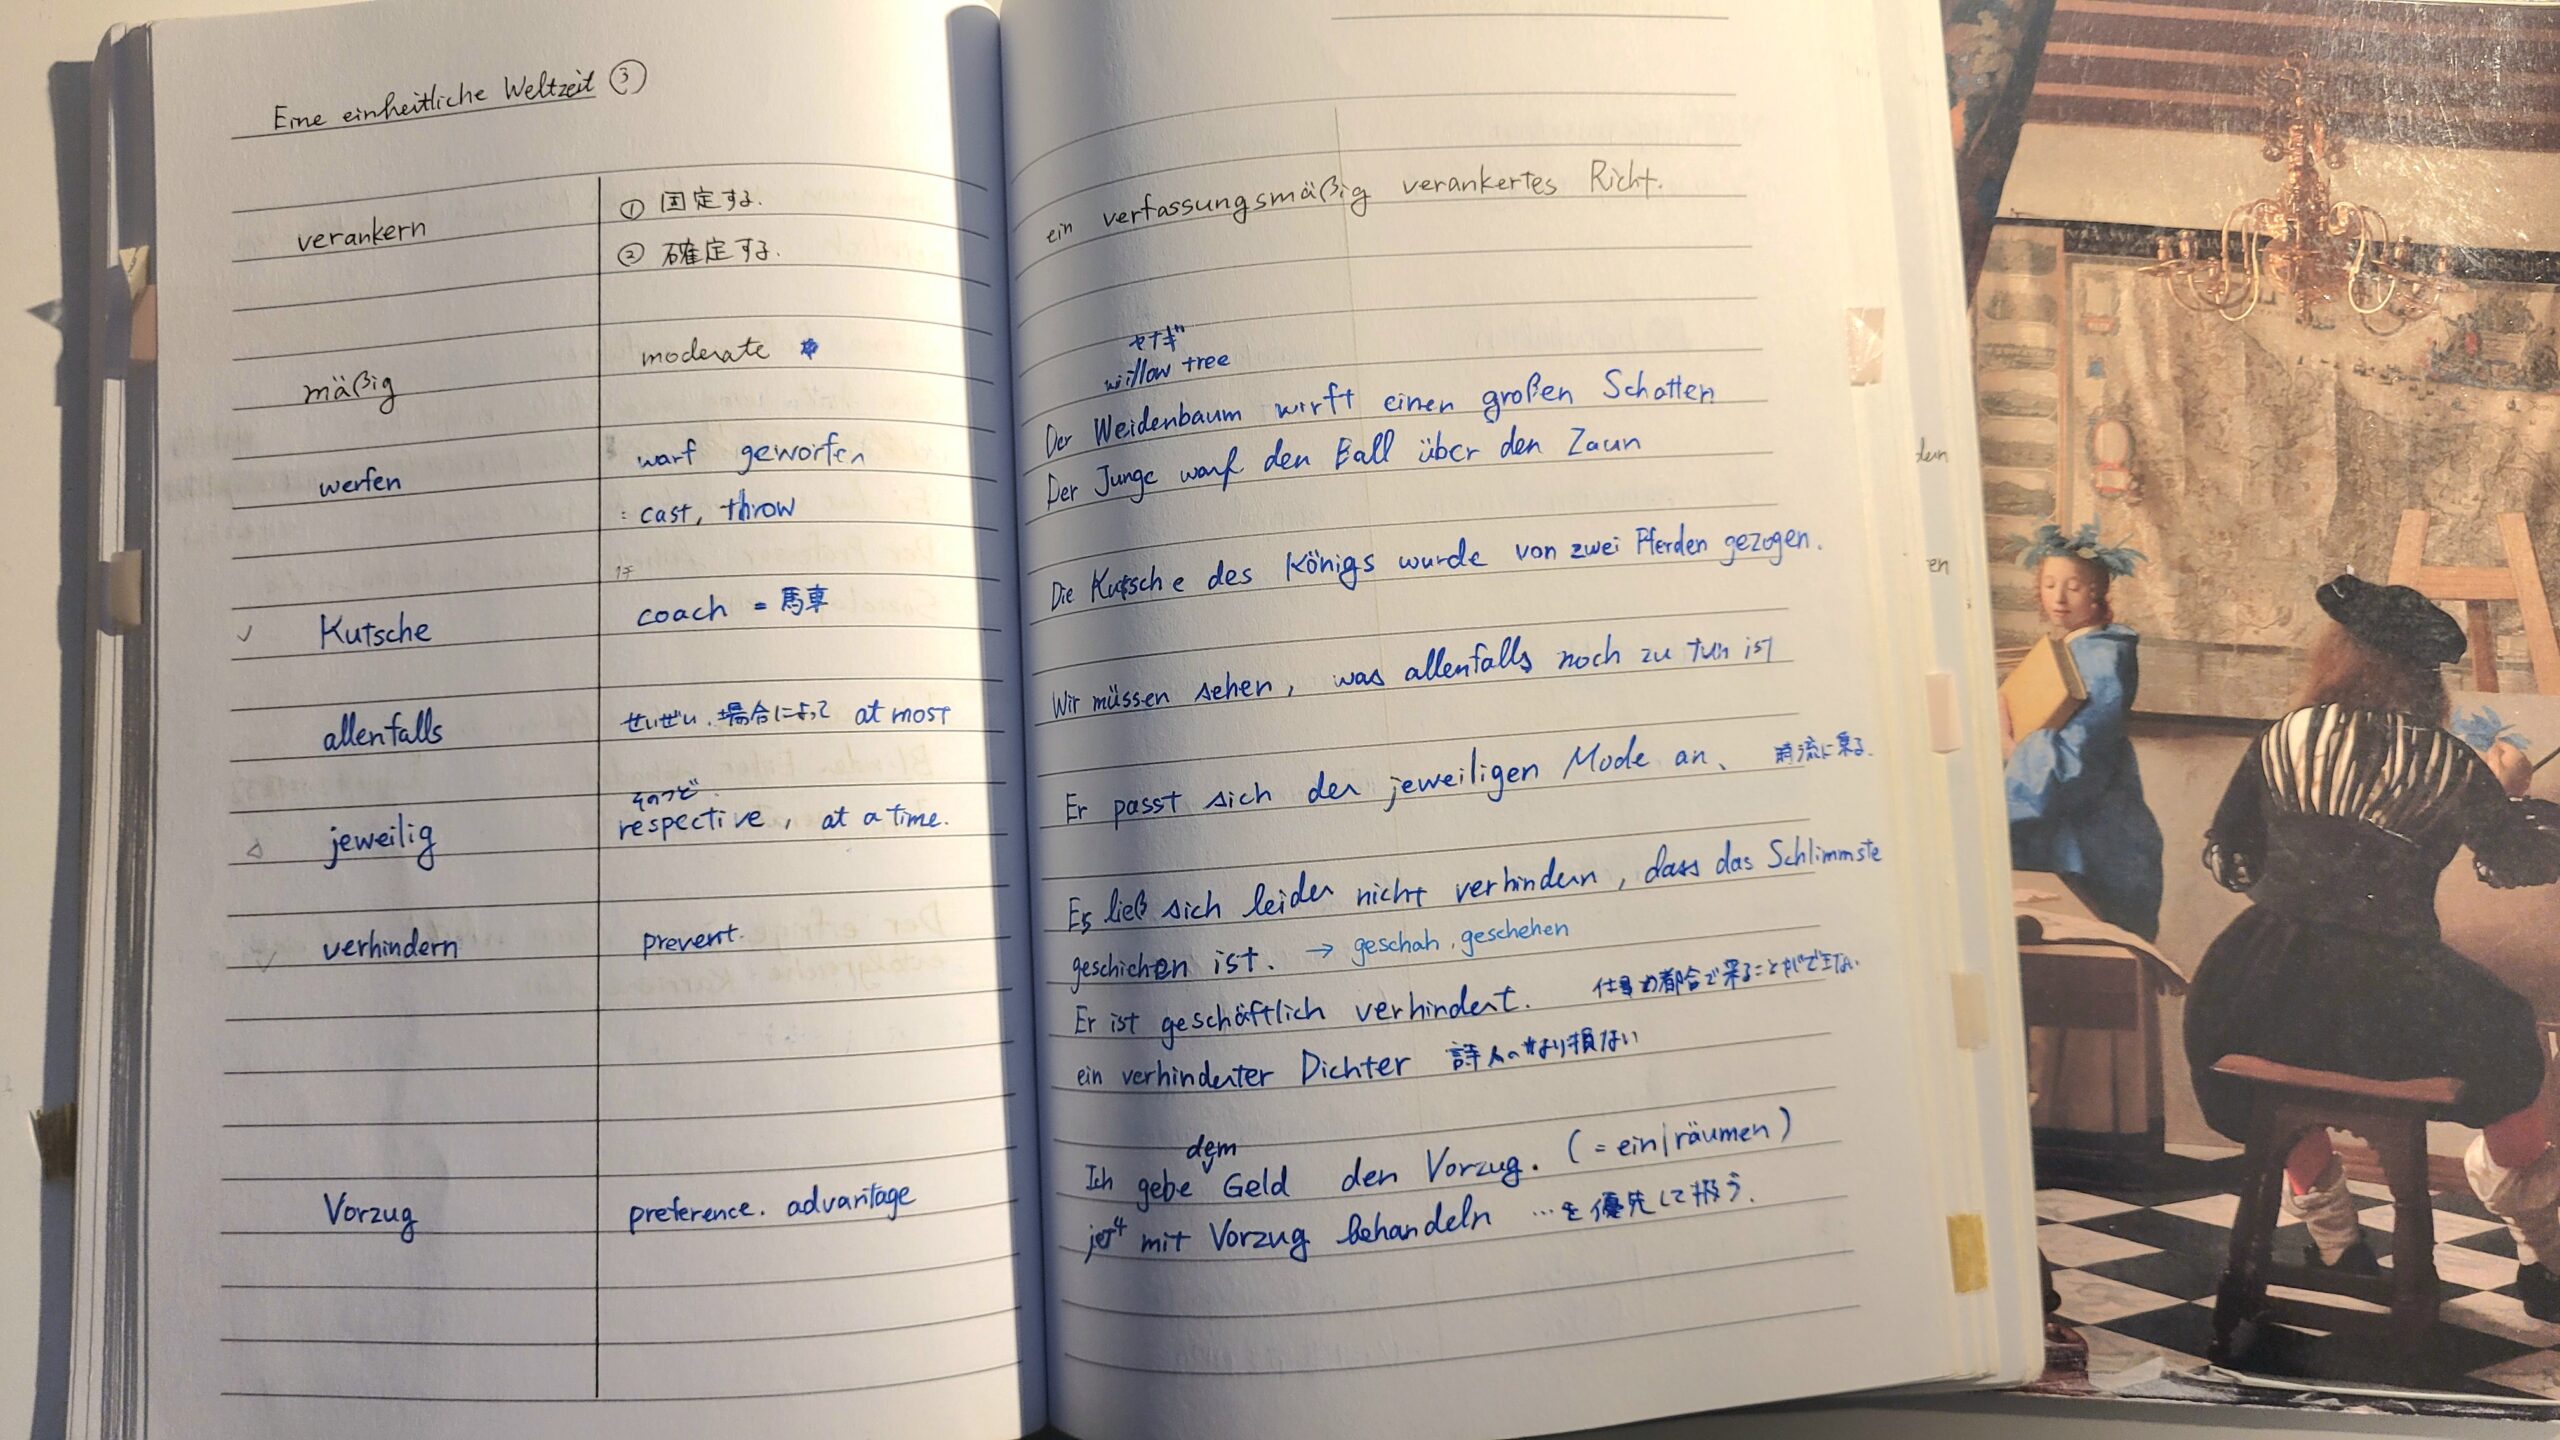 Eine einheitliche Weltzeit ③
verankern
① 固定する.
② 確定する.
mäßig
moderate
werfen
warf geworfen
: cast, throw
Kutsche
coach = 馬車
allenfalls
せいぜい. 場合によって at most
そのつど.
jeweilig
respective, at a time.
verhindern
prevent.
Vorzug
preference. advantage
ein verfassungsmäßig verankertes Richt.
willow tree
Der Weidenbaum wirft einen großen Schatten
Der Junge warf den Ball über den Zaun
Die Kutsche des Königs wurde von zwei Pferden gezogen.
Wir müssen sehen, was allenfalls noch zu tun ist
Er passt sich der jeweiligen Mode an、 流に乗る.
Es ließ sich leider nicht verhindern, dass das Schlimmste
geschichen ist. → geschah, geschehen
Er ist geschäftlich verhindert. 仕事の都合で来ることができない
ein verhinderter Dichter 詩人のなり損ない
dem
Ich gebe Geld den Vorzug. (= ein|räumen)
mit Vorzug behandeln …を優先して扱う.
ren